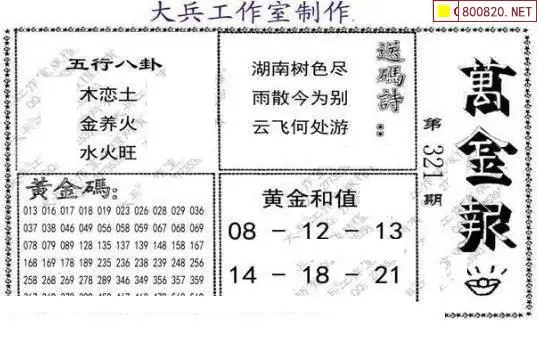 大兵工作室制作
800820.NET
五行八卦
木恋土
金养火
水火旺
湖南树色尽
雨散今为别
云飞何处游
送碼詩：
萬金報
第321期
黄金碼：
013 016 017 018 019 023 026 028 029 036
037 038 046 049 056 058 059 067 068 069
078 079 089 128 135 137 139 148 158 167
168 169 178 189 235 236 238 239 246 247
256 258 269 278 289 346 349 356 357 359
黄金和值
08 － 12 － 13
14 － 18 － 21